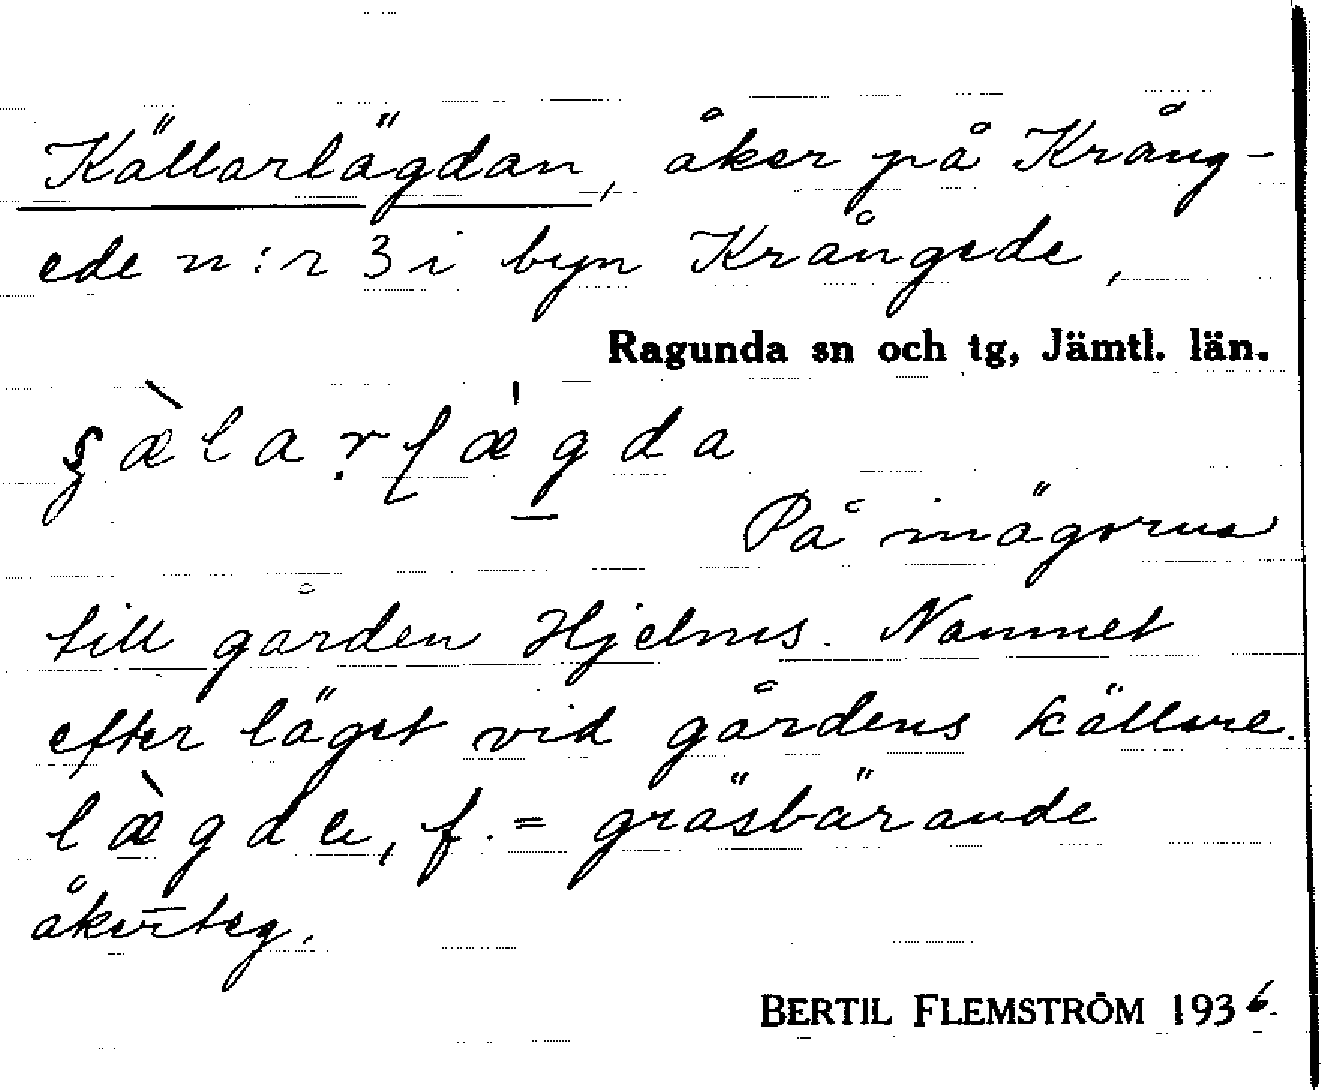 Källarlägdan, åker på Krång-
ede n:r 3 i byn Krångede,
Ragunda sn och tg, Jämtl. län.
På inägorna
till gården Hjelms. Namnet
efter läget vid gårdens källare.
lægda, f. = gräsbärande
åkerteg.
BERTIL FLEMSTRÖM 1936